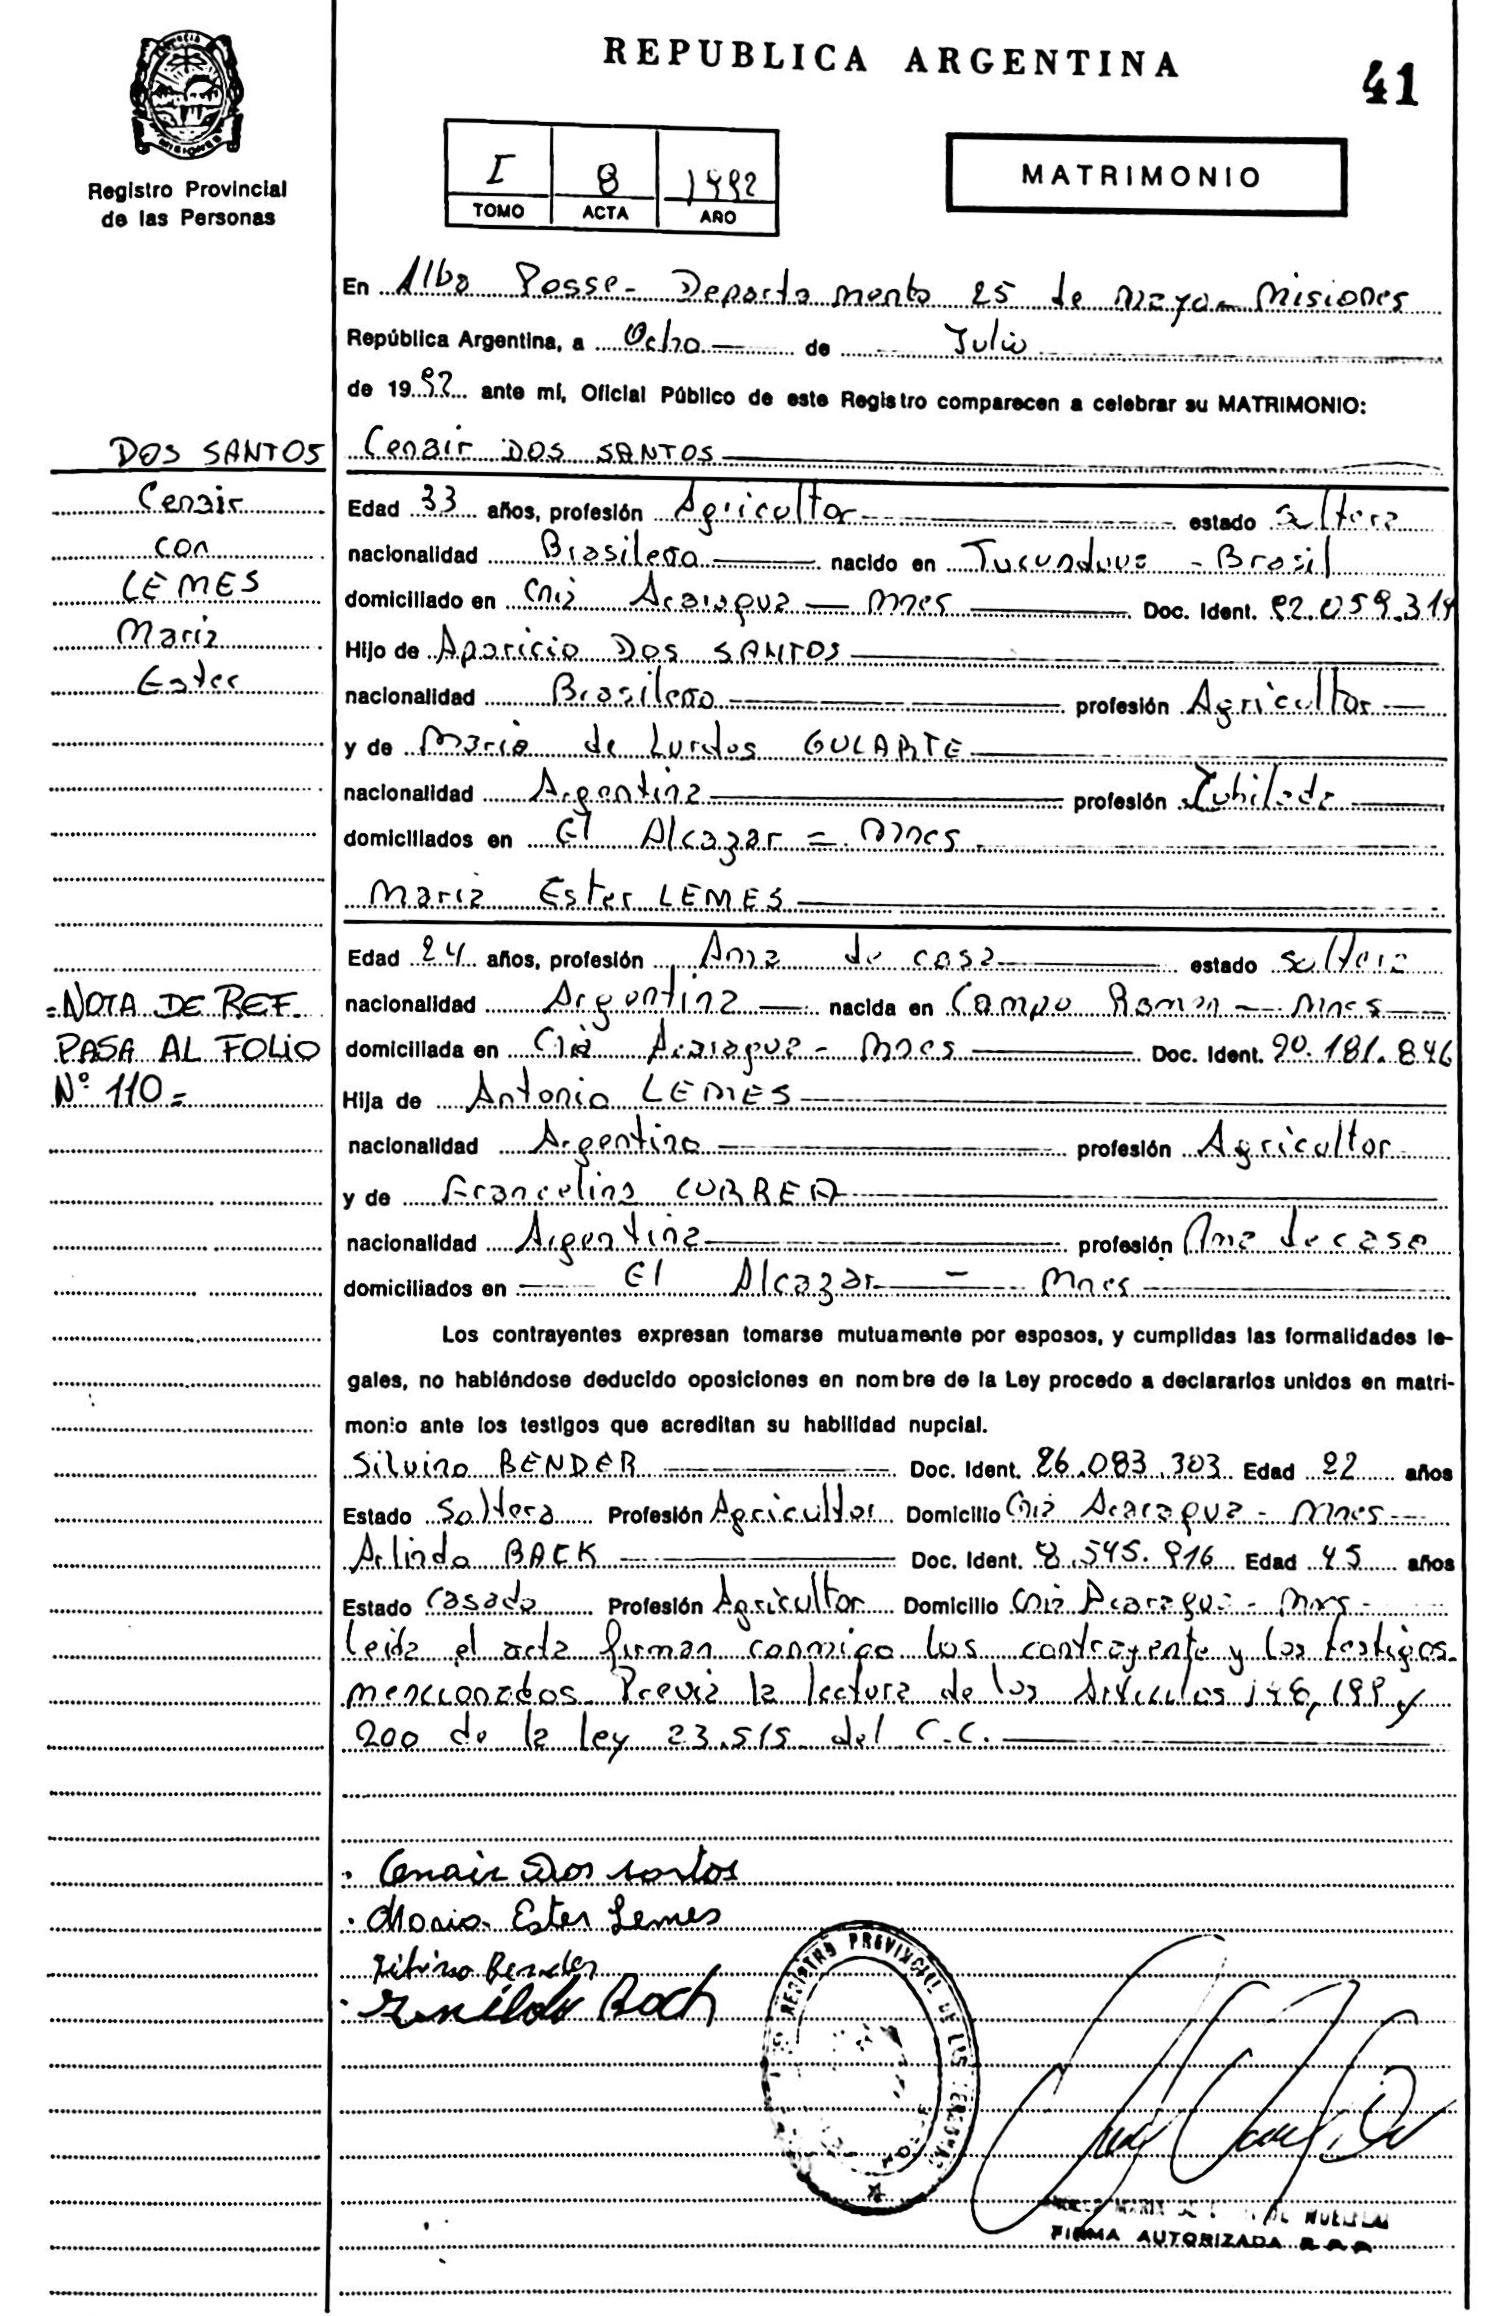 REPUBLICA ARGENTINA
41
MISIONES
Registro Provincial
de las Personas
I 8 1992
TOMO ACTA AÑO
MATRIMONIO
En Alba Posse - Departamento 25 de mayo - Misiones
República Argentina, a Ocho de Julio
de 1992 ante mí, Oficial Público de este Registro comparecen a celebrar su MATRIMONIO:
DOS SANTOS
Cenair
con
LEMES
Maria
Ester
=NOTA DE REF.
PASA AL FOLIO
Nº 110=
Cenair DOS SANTOS
Edad 33 años, profesión Agricultor estado soltero
nacionalidad Brasilero nacido en Tucunduva - Brasil
domiciliado en Cnia Acaragua - Mnes Doc. Ident. 92.059.314
Hijo de Aparicio DOS SANTOS
nacionalidad Brasilero profesión Agricultor
y de Maria de Lurdes GULARTE
nacionalidad Argentina profesión Jubilada
domiciliados en El Alcazar = Mnes.
Maria Ester LEMES
Edad 24 años, profesión Ama de casa estado soltera
nacionalidad Argentina nacida en Campo Ramon - Mnes
domiciliada en Cnia Acaragua - Mnes Doc. Ident. 20.181.846
Hija de Antonio LEMES
nacionalidad Argentino profesión Agricultor
y de Francelina CORREA
nacionalidad Argentina profesión Ama de casa
domiciliados en El Alcazar - Mnes
Los contrayentes expresan tomarse mutuamente por esposos, y cumplidas las formalidades le-
gales, no habiéndose deducido oposiciones en nombre de la Ley procedo a declararlos unidos en matri-
monio ante los testigos que acreditan su habilidad nupcial.
Silvino BENDER Doc. Ident. 26.083.303 Edad 22 años
Estado Soltero Profesión Agricultor Domicilio Cnia Acaragua - Mnes
Arlindo BACK Doc. Ident. 8.545.916 Edad 45 años
Estado Casado Profesión Agricultor Domicilio Cnia Acaragua - Mnes -
Leida el acta firman conmigo los contrayente y los testigos
mencionados. Previa la lectura de los Articulos 198, 199 y
200 de la ley 23.515 del C.C.
Cenair Dos santos
Maria Ester Lemes
Silvino Bender
REGISTRO PROVINCIAL DE LAS PERSONAS
FIRMA AUTORIZADA